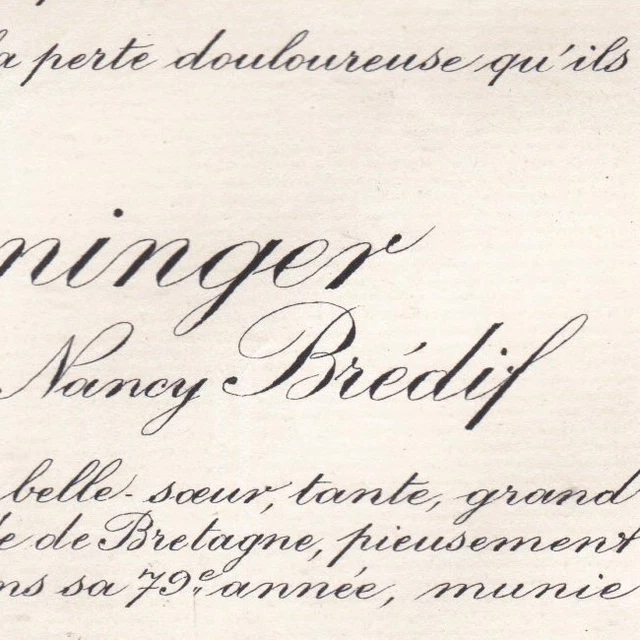 la perte douloureuse qu'ils
ninger
Nancy Brédif
belle-sœur, tante, grand
de Bretagne, pieusement
sa 79e année, munie